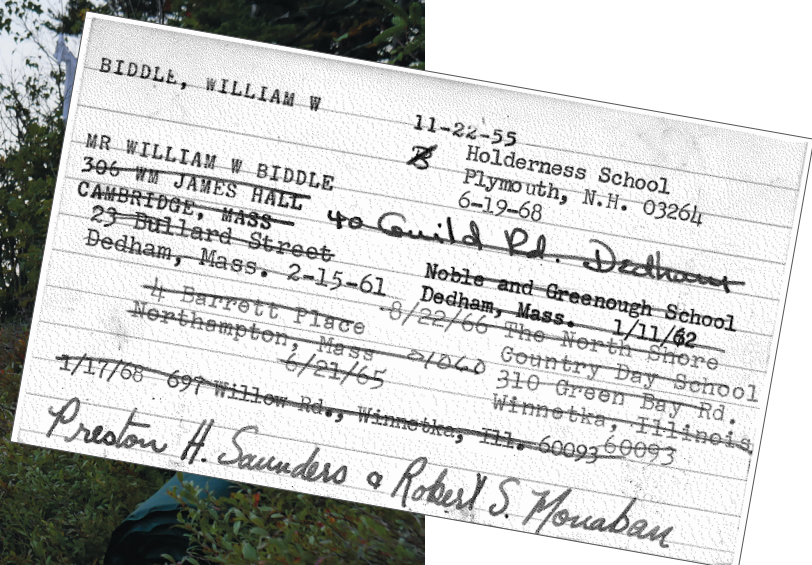 BIDDLE, WILLIAM W
11-22-55
B
Holderness School
Plymouth, N.H. 03264
6-19-68
MR WILLIAM W BIDDLE
306 WM JAMES HALL
CAMBRIDGE, MASS
23 Bullard Street
Dedham, Mass. 2-15-61
40 Guild Rd. Dedham
Noble and Greenough School
Dedham, Mass. 1/11/62
4 Barrett Place
Northampton, Mass 01060
6/21/65
8/22/66 The North Shore
Country Day School
310 Green Bay Rd.
Winnetka, Illinois
60093
1/17/68 697 Willow Rd., Winnetka, Ill. 60093
Preston H. Saunders & Robert S. Monahan